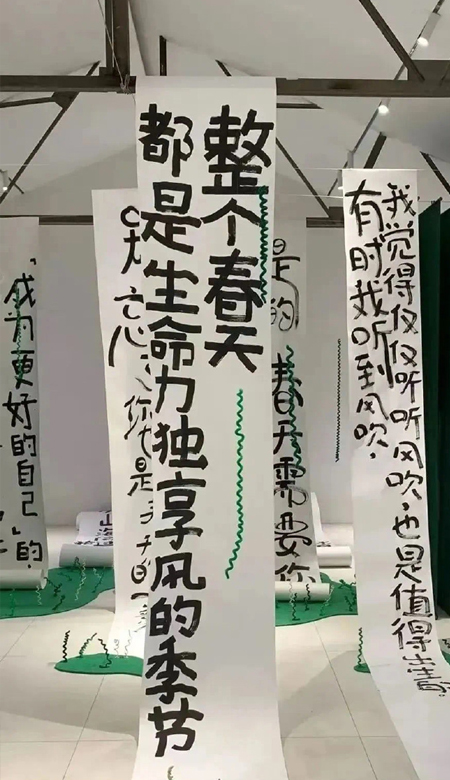 整个春天
都是生命力独享风的季节
有时我听到风吹,
我觉得仅仅听听风吹,也是值得出生的
是的
春天需要你
“成为更好的自己”的